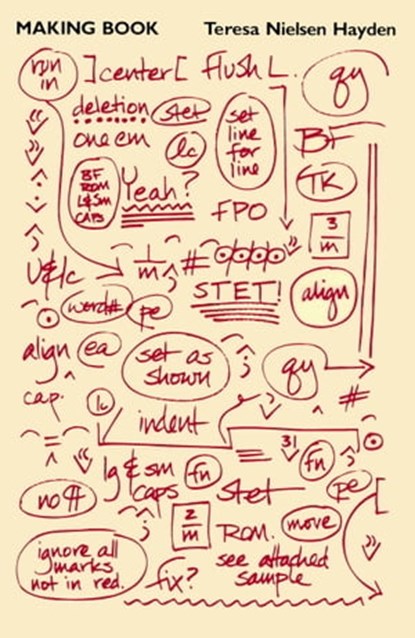 MAKING BOOK Teresa Nielsen Hayden
run in ]center[ flush L. qy
deletion stet set line for line
one em lc BF
BF ROM L&Sm CAPS Yeah? TK
FPO 3/m
U&lc 1/m #
STET! align
word# pe
align ea set as shown qy
cap. lc indent #
31
lg & sm caps fn stet fn pe
no ¶ 2/m ROM. move
ignore all marks not in red. fix? see attached sample